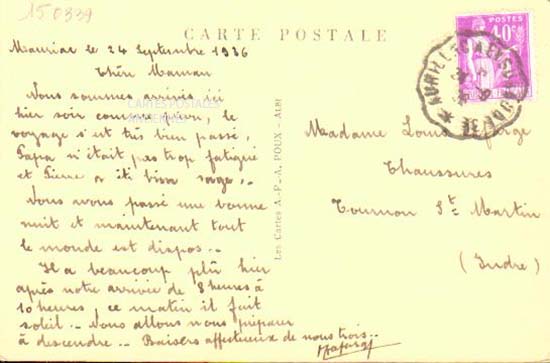 150339
CARTE POSTALE
Mauriac le 24 Septembre 1936
Chère Maman
Nous sommes arrivés ici
hier soir comme prévu, le
voyage s'est très bien passé,
Papa n'était pas trop fatigué
et Pierre a été bien sage.
Nous avons passé une bonne
nuit et maintenant tout
le monde est dispos..
Il a beaucoup plû hier
après notre arrivée de 8 heures à
10 heures, ce matin il fait
soleil.. Nous allons nous préparer
à descendre.. Baisers affectueux de nous trois..
CARTES POSTALES
ANCIENNES
Les Cartes A.-F.-A. POUX - ALBI
POSTES
40c
AURILLAC
Madame Louis
Chaussures
Tournon St Martin
(Indre)